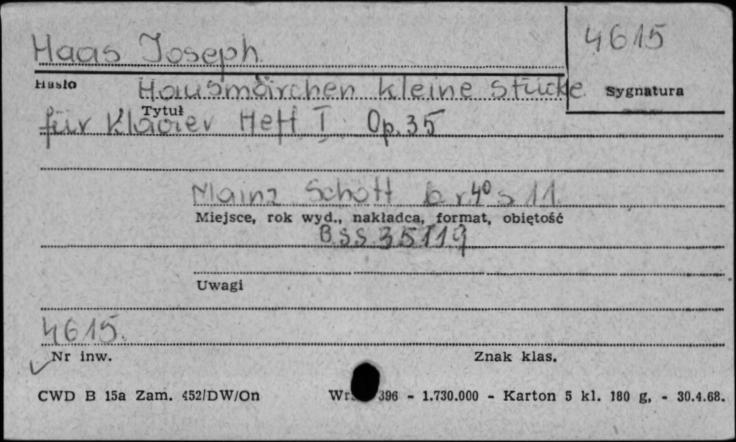 Haas Joseph
4615
Hasło
Hausmärchen kleine Stücke
Sygnatura
Tytuł
für Klavier Heft I Op. 35
Mainz Schott b r 4° s 11.
Miejsce, rok wyd., nakładca, format, obiętość
B.S.S. 35119
Uwagi
4615.
Nr inw.
Znak klas.
CWD B 15a Zam. 452/DW/On
396 - 1.730.000 - Karton 5 kl. 180 g, - 30.4.68.